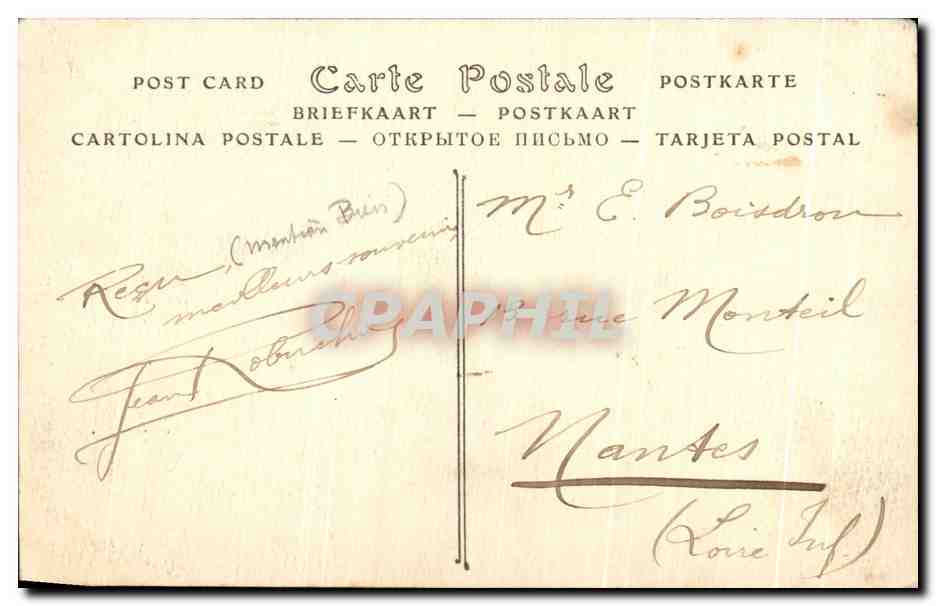 POST CARD Carte Postale POSTKARTE
BRIEFKAART — POSTKAART
CARTOLINA POSTALE — ОТКРЫТОЕ ПИСЬМО — TARJETA POSTAL
Reçu, (mention Bien)
meilleurs souvenirs
Jean
CPAPHIL
Mr E. Boisdron
13 rue Monteil
Nantes
(Loire Inf.)